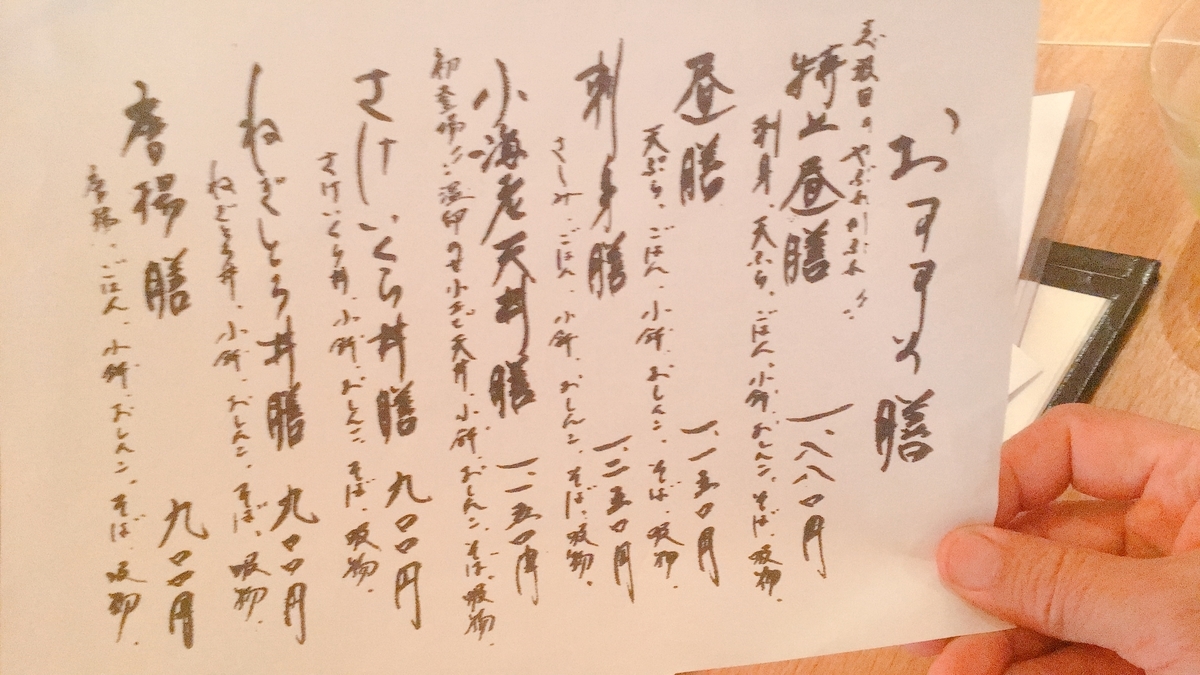 おすすめ膳
特上昼膳 一、八八〇円
刺身、天ぷら、ごはん、小鉢、おしんこ、そば、吸物、
昼膳 一、一五〇円
天ぷら、ごはん、小鉢、おしんこ、そば、吸物、
刺身膳 一、二五〇円
さしみ、ごはん、小鉢、おしんこ、そば、吸物、
小海老天丼膳 一、一五〇円
小えび天丼、小鉢、おしんこ、そば、吸物、
さけいくら丼膳 九〇〇円
さけいくら丼、小鉢、おしんこ、そば、吸物、
ねぎとろ丼膳 九〇〇円
ねぎとろ丼、小鉢、おしんこ、そば、吸物、
唐揚膳 九〇〇円
唐揚、ごはん、小鉢、おしんこ、そば、吸物、